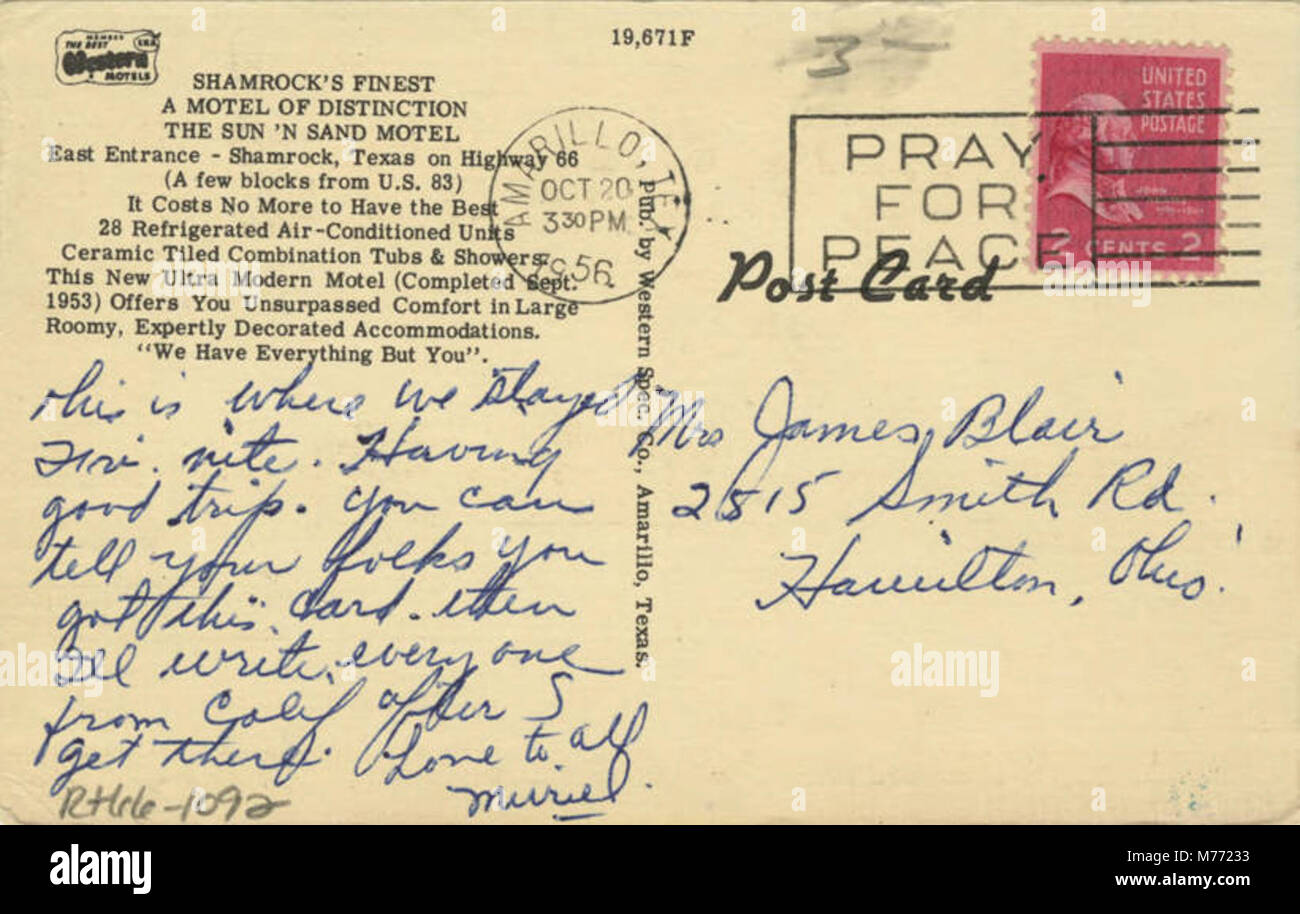 19,671F
3-
MEMBER
THE BEST
Western
MOTELS
SHAMROCK'S FINEST
A MOTEL OF DISTINCTION
THE SUN 'N SAND MOTEL
East Entrance - Shamrock, Texas on Highway 66
(A few blocks from U.S. 83)
It Costs No More to Have the Best
28 Refrigerated Air-Conditioned Units
Ceramic Tiled Combination Tubs & Showers,
This New Ultra Modern Motel (Completed Sept.
1953) Offers You Unsurpassed Comfort in Large
Roomy, Expertly Decorated Accommodations.
"We Have Everything But You".
AMARILLO, TEX
OCT 20
3 30 PM
1956
PRAY
FOR
PEACE
UNITED
STATES
POSTAGE
JOHN
2 CENTS 2
Post Card
Pub. by Western Spec. Co., Amarillo, Texas.
This is where we stayed
nite. Having
good trip. You can
tell your folks you
got this card. then
I'll write everyone
from Calif after I
get there. Love to all
Muriel.
Mrs James Blair
2515 Smith Rd.
Hamilton, Ohio.
Rt66-1092
alamy
alamy
Image ID: M77233
www.alamy.com